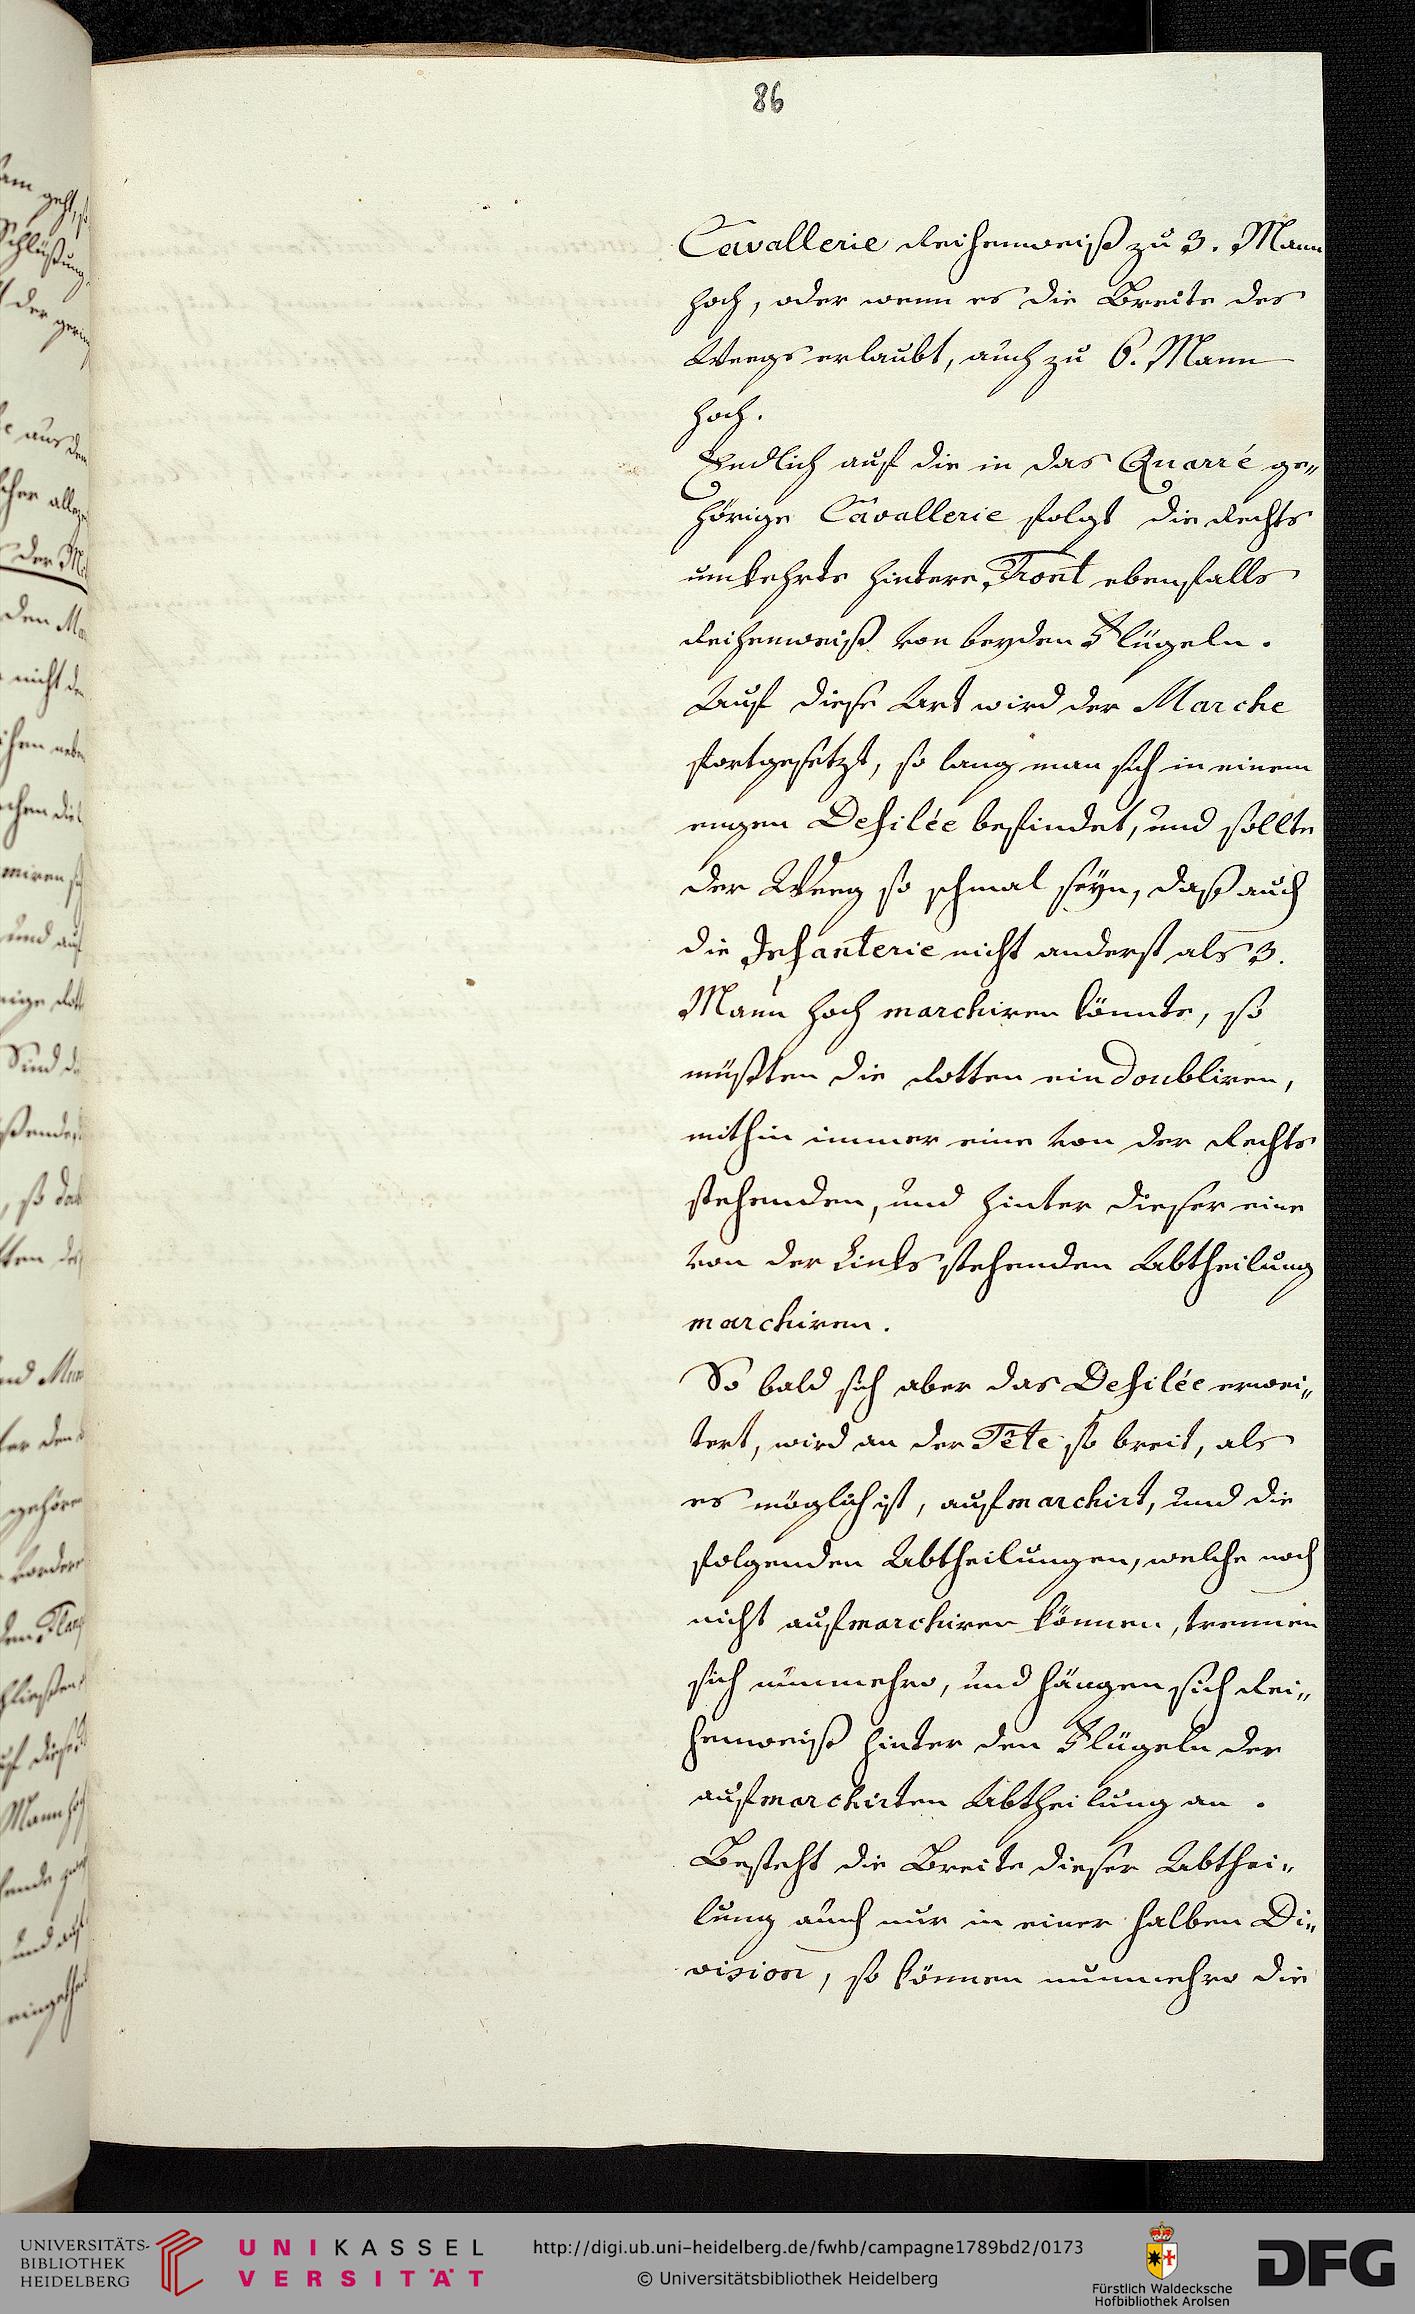 86
Cavallerie Reihenweiß zu 3. Mann
hoch, oder wenn es die Breite des
Weegs erlaubt, auch zu 6. Mann
hoch.
Endlich auf die in das Quarré ge„
hörige Cavallerie folgt die Rechts
umkehrte hintere Front ebenfalls
Reihenweiß von beyden Flügeln.
Auf diese Art wird der Marche
fortgesetzt, so lang man sich in einem
engen Defilée befindet, und sollte
der Weeg so schmal seyn, daß auch
die Infanterie nicht anderst als 3.
Mann hoch marchiren könnte, so
müßten die Rotten ein doubliren,
mithin immer eine von der Rechts
stehenden, und hinter dieser eine
von der Links stehenden Abtheilung
marchiren.
So bald sich aber das Defilée erwei„
tert, wird an der Tête so breit, als
es möglich ist, aufmarchirt, und die
folgenden Abtheilungen, welche noch
nicht aufmarchiren können, trennen
sich nunmehro, und hängen sich Rei„
henweiß hinter den Flügeln der
aufmarchirten Abtheilung an.
Besteht die Breite dieser Abthei„
lung auch nur in einer halben Di„
vision, so können nunmehro die
UNIVERSITÄTS-
BIBLIOTHEK
HEIDELBERG
UNIKASSEL
VERSITÄT
http://digi.ub.uni-heidelberg.de/fwhb/campagne1789bd2/0173
© Universitätsbibliothek Heidelberg
Fürstlich Waldecksche
Hofbibliothek Arolsen
DFG